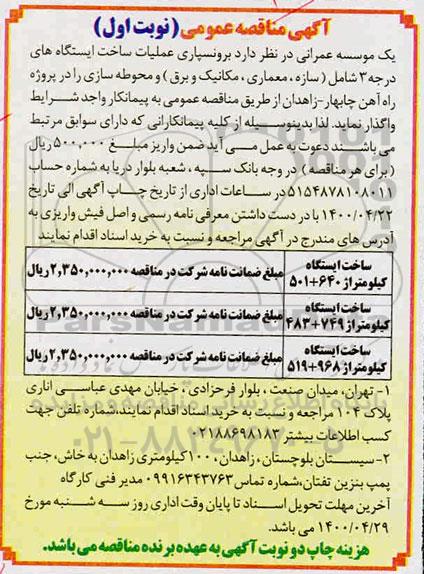 آگهی مناقصه عمومی (نوبت اول)
یک موسسه عمرانی در نظر دارد برونسپاری عملیات ساخت ایستگاه های
درجه ۳ شامل (سازه ، معماری ، مکانیک و برق) و محوطه سازی را در پروژه
راه آهن چابهار-زاهدان از طریق مناقصه عمومی به پیمانکار واجد شرایط
واگذار نماید. لذا بدینوسیله از کلیه پیمانکارانی که دارای سوابق مرتبط
می باشند دعوت به عمل می آید ضمن واریز مبلغ ۵۰۰,۰۰۰ ریال
(برای هر مناقصه) در وجه بانک سپه ، شعبه بلوار دریا به شماره حساب
۵۱۵۴۸۷۸۱۰۸۰۱۱ در ساعات اداری از تاریخ چاپ آگهی الی تاریخ
۱۴۰۰/۰۴/۲۲ با در دست داشتن معرفی نامه رسمی و اصل فیش واریزی به
آدرس های مندرج در آگهی مراجعه و نسبت به خرید اسناد اقدام نمایند
ساخت ایستگاه
کیلومتراژ ۶۴۰+۵۰۱
مبلغ ضمانت نامه شرکت در مناقصه ۲,۳۵۰,۰۰۰,۰۰۰ ریال
ساخت ایستگاه
کیلومتراژ ۷۴۹+۴۸۳
مبلغ ضمانت نامه شرکت در مناقصه ۲,۳۵۰,۰۰۰,۰۰۰ ریال
ساخت ایستگاه
کیلومتراژ ۹۶۸+۵۱۹
مبلغ ضمانت نامه شرکت در مناقصه ۲,۳۵۰,۰۰۰,۰۰۰ ریال
۱- تهران، میدان صنعت ، بلوار فرحزادی ، خیابان مهدی عباسی اناری
پلاک ۱۰۴ مراجعه و نسبت به خرید اسناد اقدام نمایند،شماره تلفن جهت
کسب اطلاعات بیشتر ۰۲۱۸۸۶۹۸۱۸۳
۲- سیستان بلوچستان ، زاهدان ، ۱۰۰ کیلومتری زاهدان به خاش، جنب
پمپ بنزین تفتان،شماره تماس ۰۹۹۱۶۳۴۳۷۶۳ مدیر فنی کارگاه
آخرین مهلت تحویل اسناد تا پایان وقت اداری روز سه شنبه مورخ
۱۴۰۰/۰۴/۲۹ می باشد.
هزینه چاپ دو نوبت آگهی به عهده برنده مناقصه می باشد.